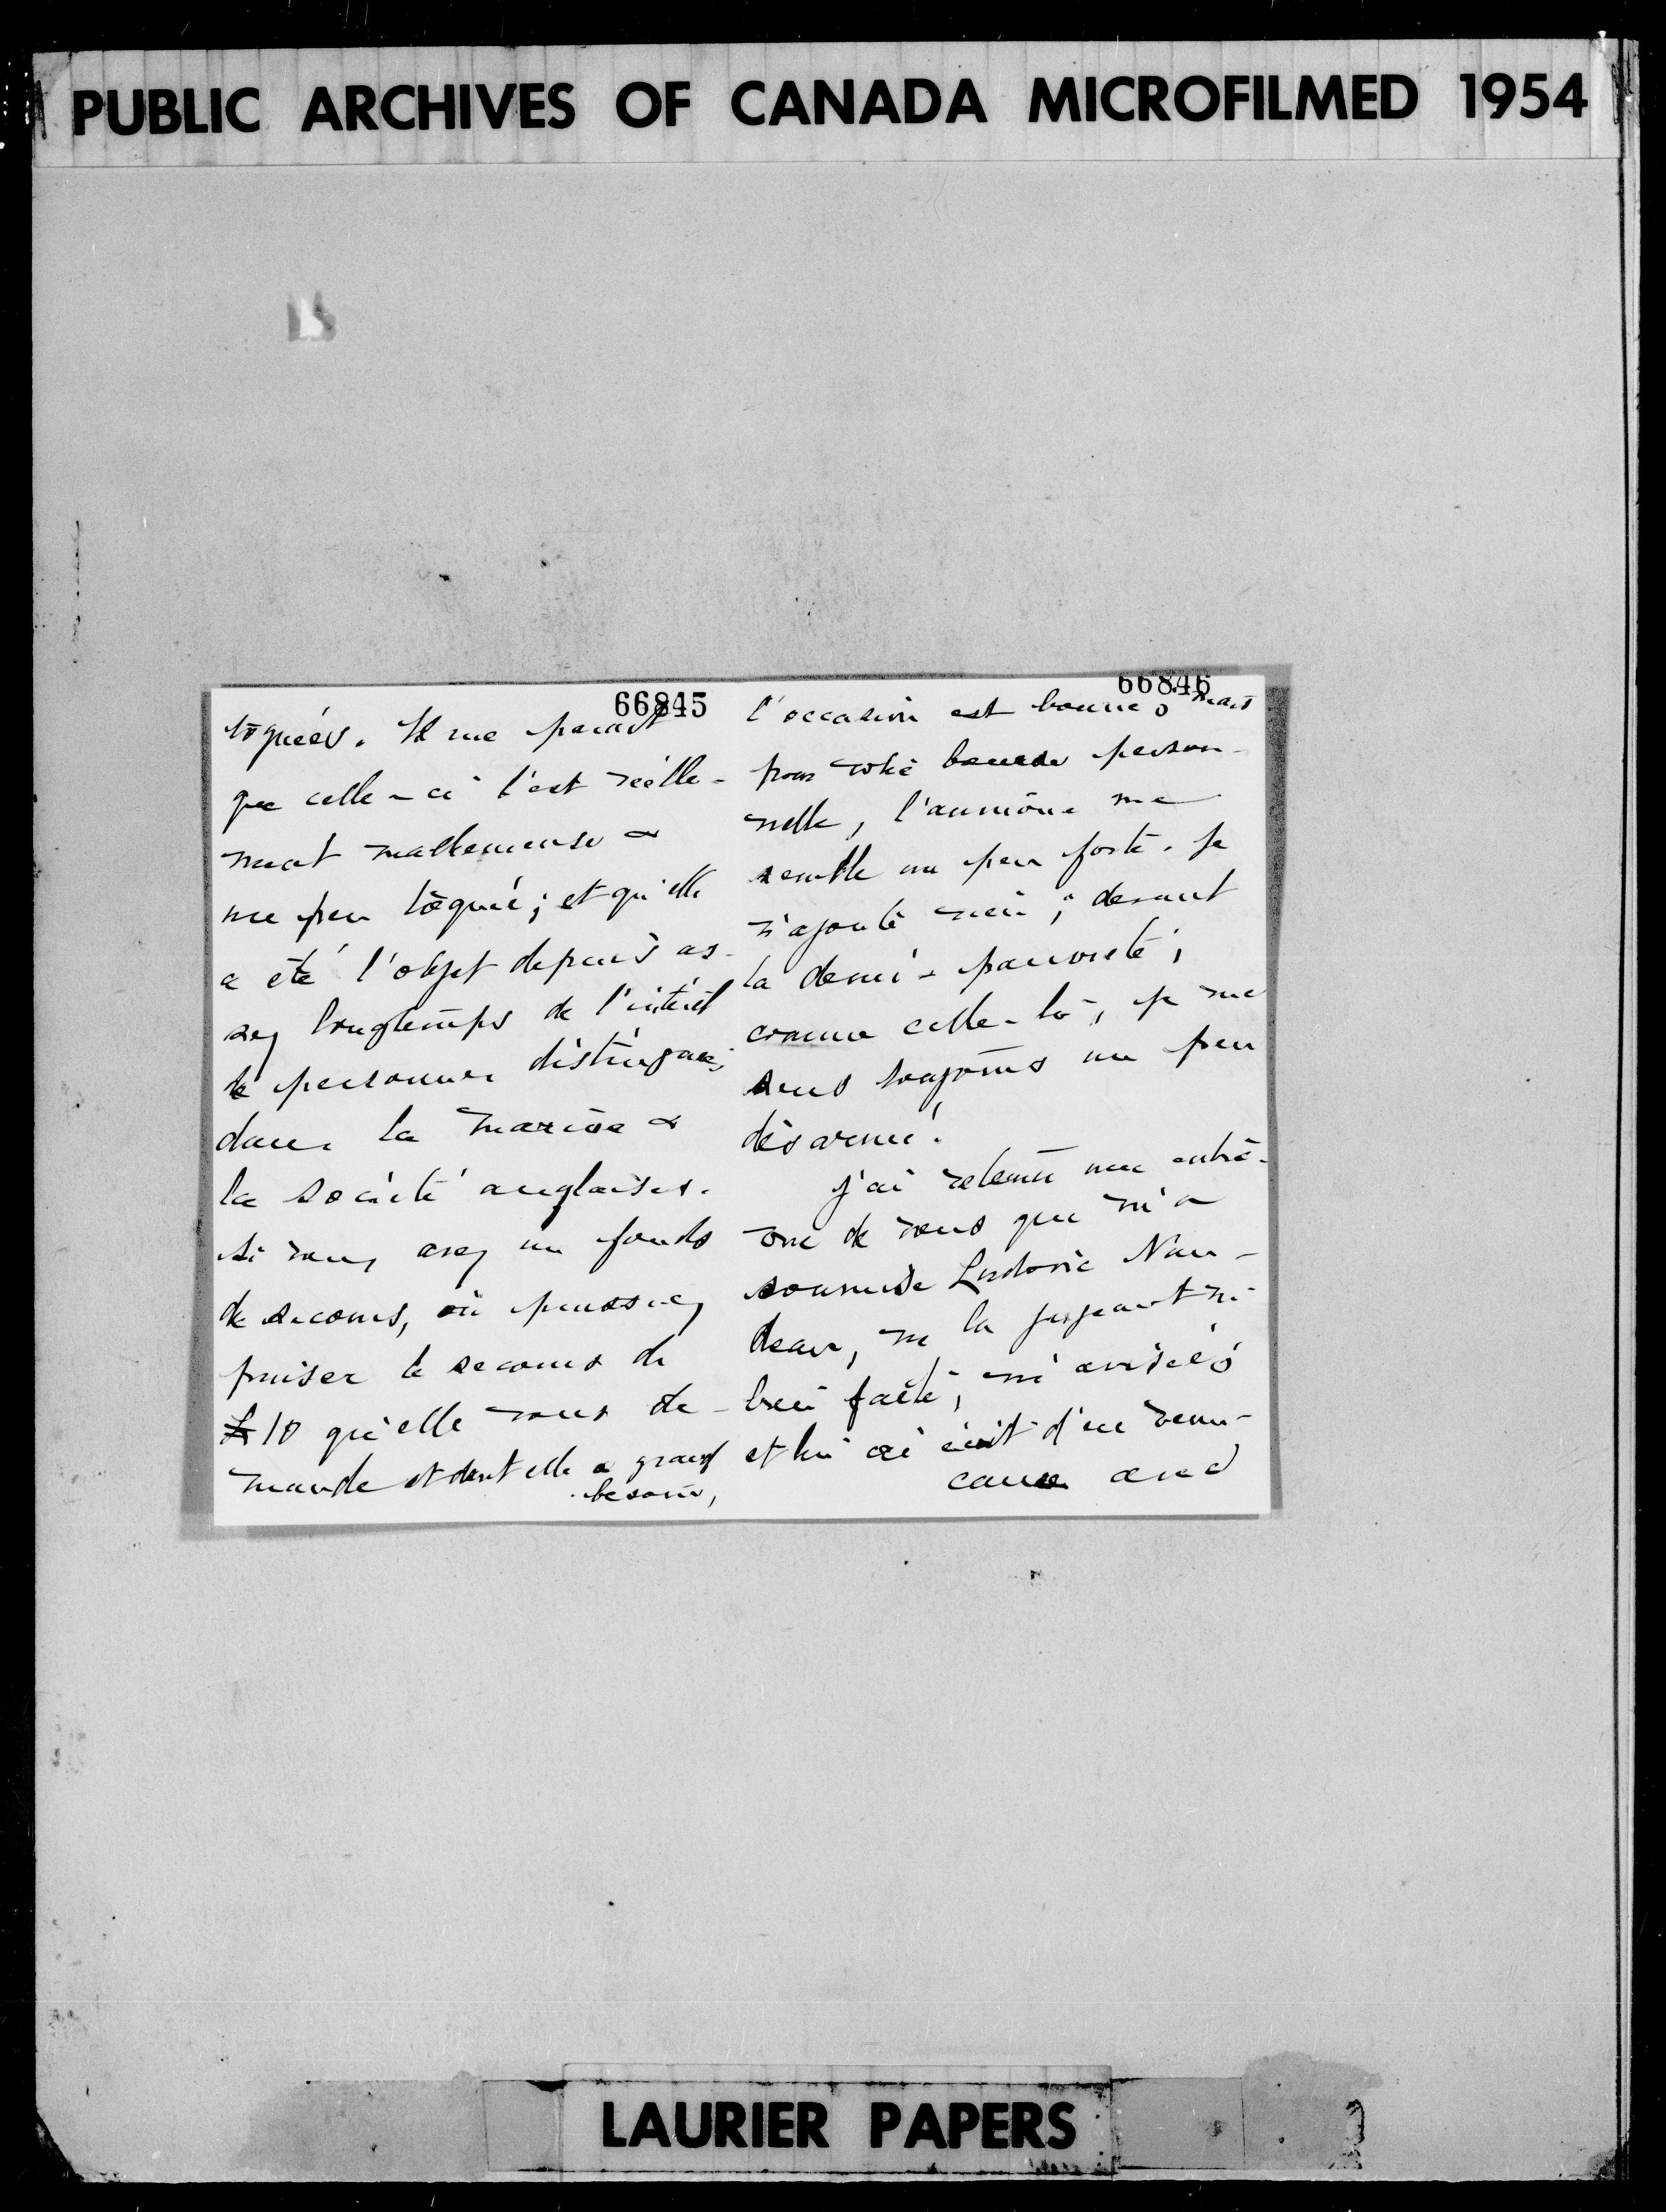 PUBLIC ARCHIVES OF CANADA MICROFILMED 1954
66845
toquées. Il me parait
que celle-ci l'est réelle-
ment malheureuse &
une peu toquée; et qu'elle
a été l'objet depuis as-
sez longtemps de l'intérêt
de personnes distinguées
dans la marine &
la société anglaises.
Si vous avez un fonds
de secours, où puissiez
puiser le secours de
£10 qu'elle vous de-
mande et dont elle a grand
besoin,
66846
l'occasion est bonne; mais
pour votre bourse person-
nelle, l'aumône me
semble un peu forte. Je
n'ajoute rien; devant
la demi-pauvreté,
comme celle-là, je me
sens toujours un peu
désarmé.
J'ai retenu une entre-
vue de vous que m'a
soumise Ludovic Nau-
deau, ne la jugeant ni
bien faite, ni avisée;
et lui ai écrit d'en
causer and
LAURIER PAPERS